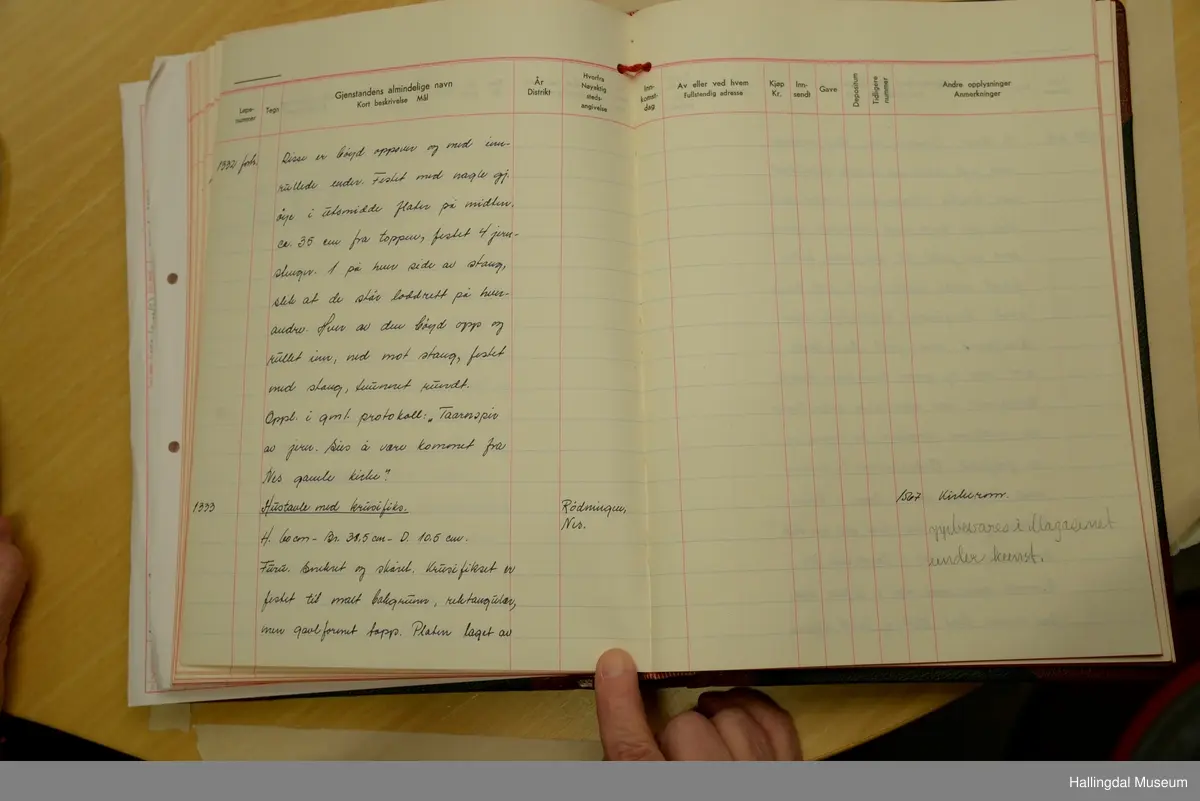 Løpe-
nummer
Tegn
Gjenstandens almindelige navn
Kort beskrivelse Mål
År
Distrikt
Hvorfra
Nøyaktig
steds-
angivelse
Inn-
komst-
dag
Av eller ved hvem
Fullstendig adresse
Kjøp
Kr.
Inn-
sendt
Gave
Depositum
Tidligere
nummer
Andre opplysninger
Anmerkninger
1332 forts.
Disse er böyd oppover og med inn-
rullede ender. Festet med nagle gj.
öye i utsmidde flater på midten.
ca. 35 cm fra toppen, festet 4 jern-
stenger. 1 på hver side av stang,
slik at de står loddrett på hver-
andre. Hver av dem böyd opp og
rullet inn, ned mot stang, festet
med stang, tvunnet rundt.
Oppl. i gml. protokoll: "Taarnspir
av jern. Sies å være kommet fra
Nes gamle kirke."
1333
Hustavle med krusifiks.
Rödningen,
Nes.
1567
Kirkerom.
H. 60 cm - Br. 38,5 cm - D. 10.5 cm.
oppbevares i Magasinet
under kunst.
Furu. Snekret og skåret. Krusifikset er
festet til malt bakgrunn, rektangulær,
men gavlformet topp. Platen laget av
Hallingdal Museum